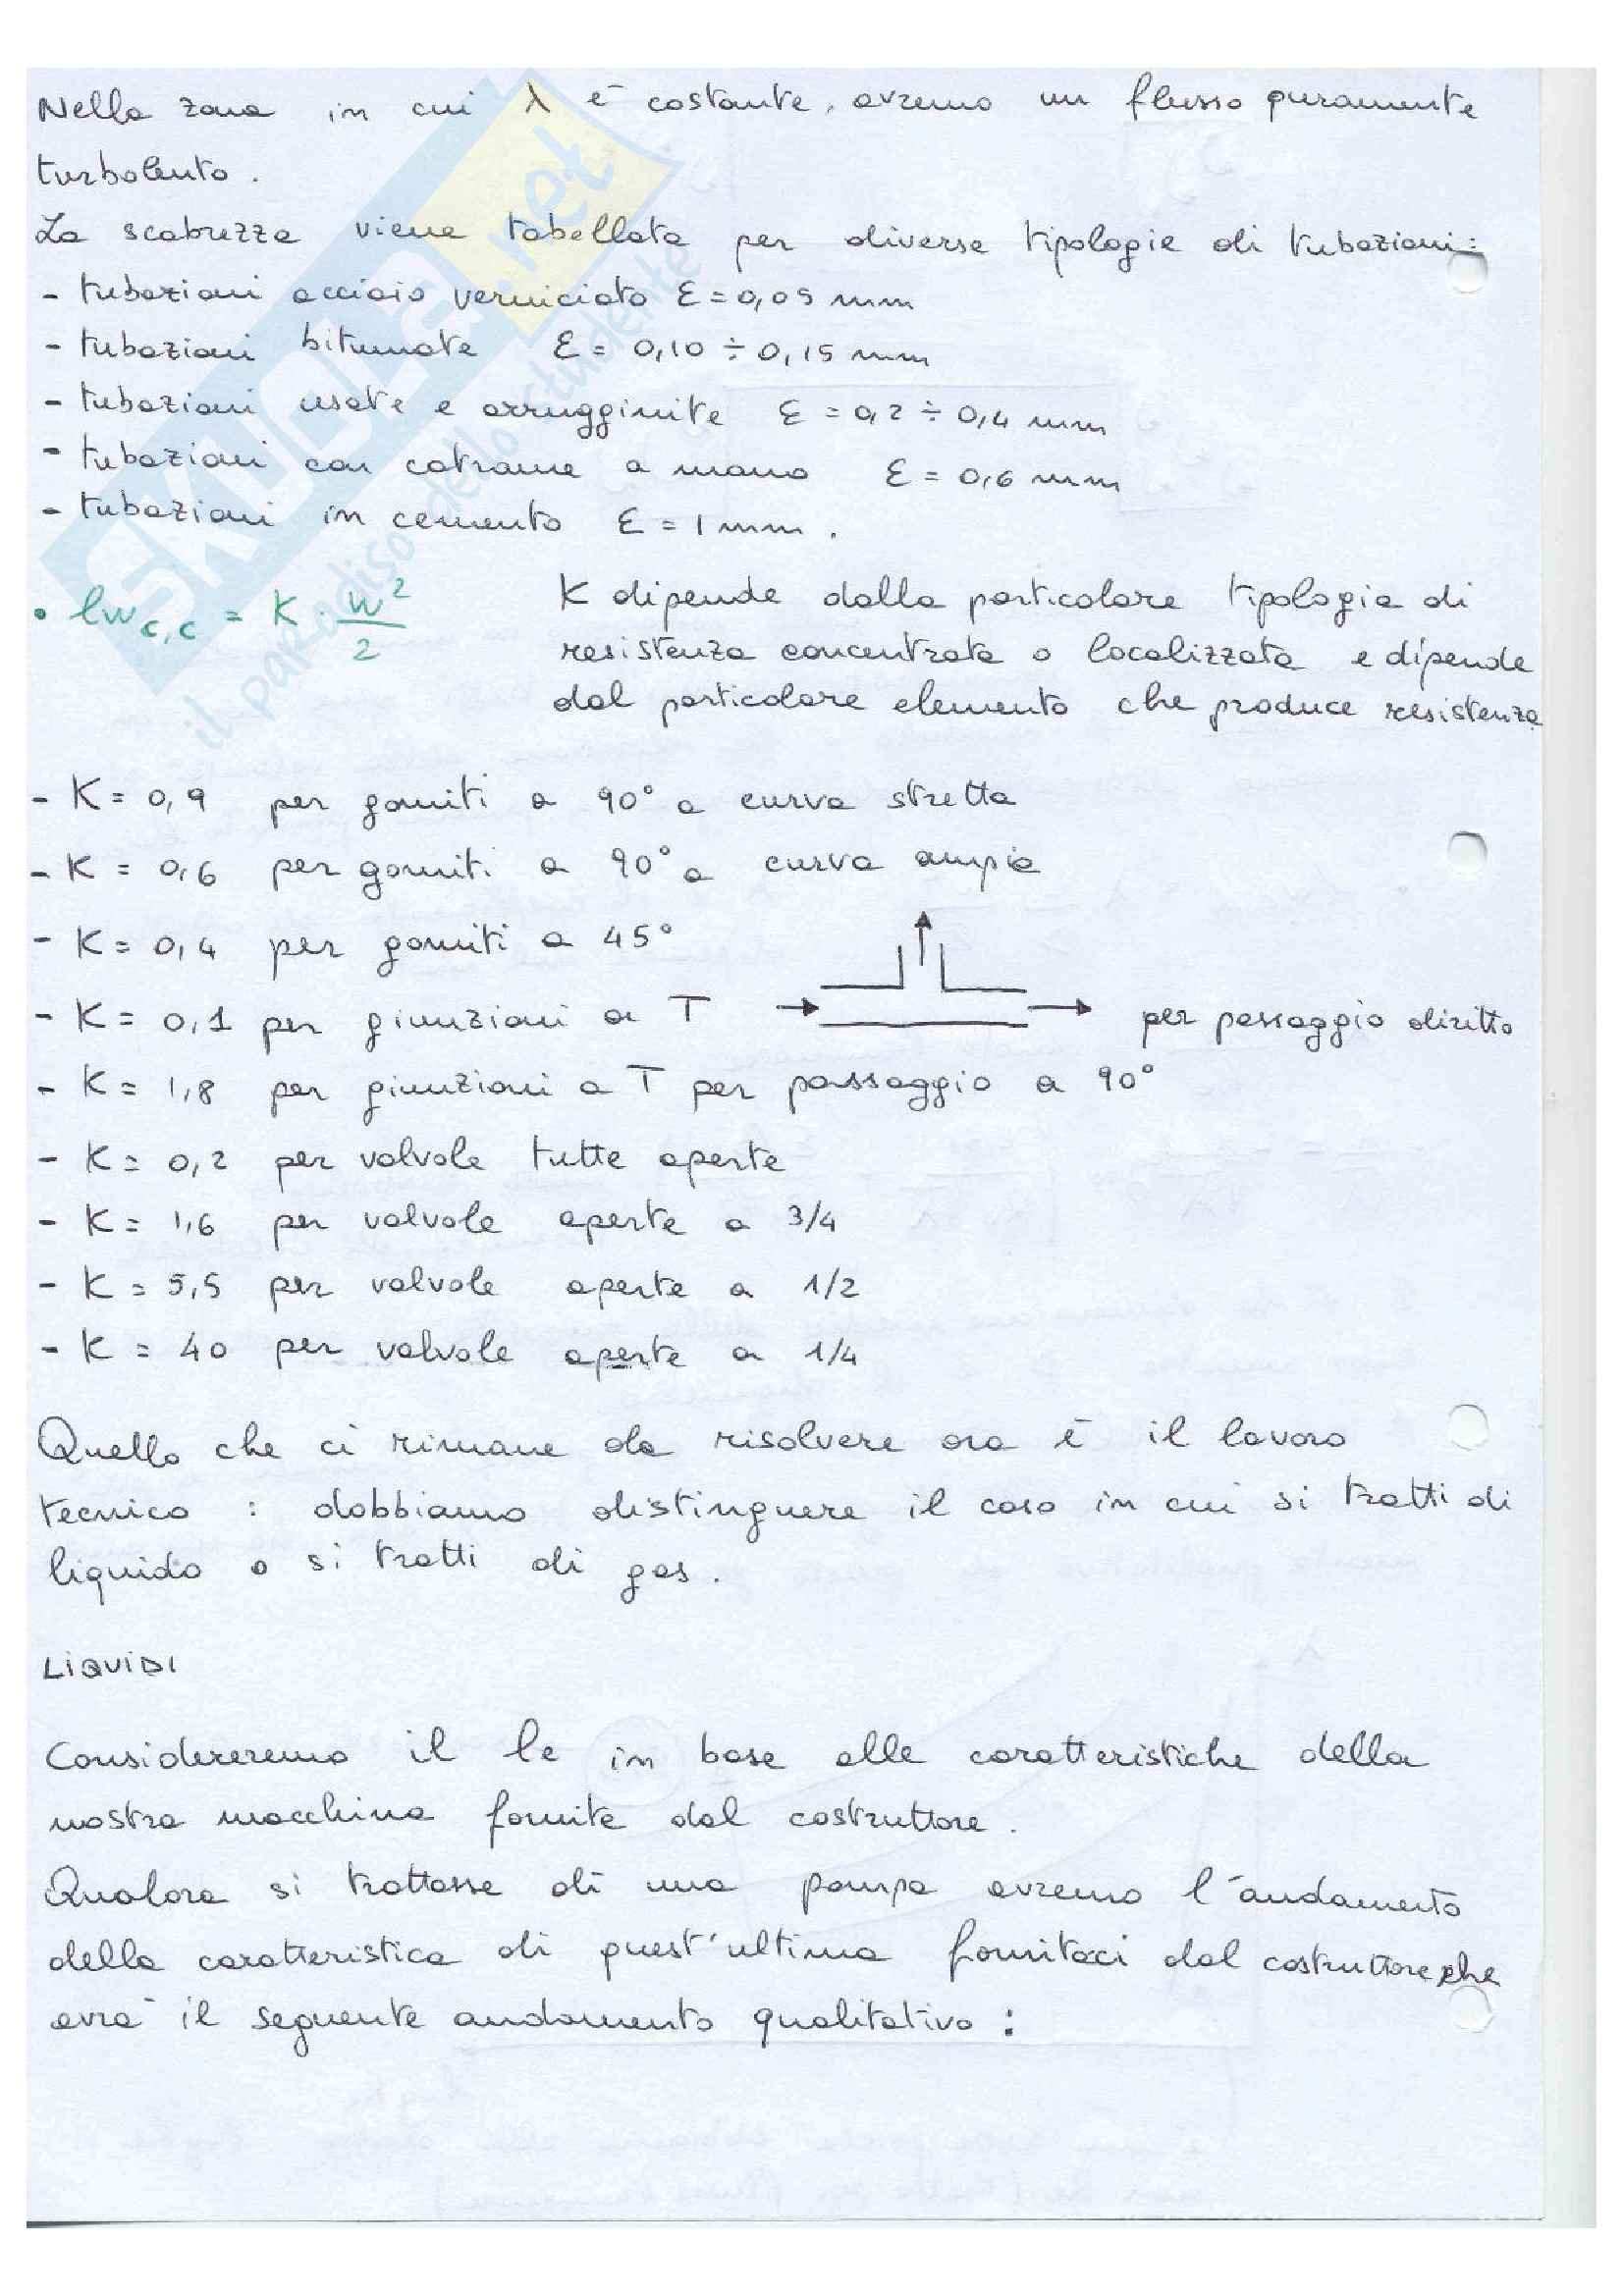 Nella zona in cui λ è costante, avremo un flusso puramente
turbolento.
La scabrezza viene tabellata per diverse tipologie di tubazioni:
- tubazioni acciaio verniciato ε = 0,05 mm
- tubazioni bitumate ε = 0,10 ÷ 0,15 mm
- tubazioni usate e arrugginite ε = 0,2 ÷ 0,4 mm
- tubazioni con catrame a mano ε = 0,6 mm
- tubazioni in cemento ε = 1 mm.
SKUOLA.net
il paradiso dello studente
• lw_c,c = K · w²/2
K dipende dalla particolare tipologia di
resistenza concentrata o localizzata e dipende
dal particolare elemento che produce resistenza
- K = 0,9 per gomiti a 90° a curva stretta
- K = 0,6 per gomiti a 90° a curva ampia
- K = 0,4 per gomiti a 45°
- K = 0,1 per giunzioni a T per passaggio diritto
- K = 1,8 per giunzioni a T per passaggio a 90°
- K = 0,2 per valvole tutte aperte
- K = 1,6 per valvole aperte a 3/4
- K = 5,5 per valvole aperte a 1/2
- K = 40 per valvole aperte a 1/4
Quello che ci rimane da risolvere ora è il lavoro
tecnico : dobbiamo distinguere il caso in cui si tratti di
liquido o si tratti di gas.
LIQUIDI
Considereremo il le in base alle caratteristiche della
nostra macchina fornite dal costruttore.
Qualora si trattasse di una pompa avremo l'andamento
della caratteristica di quest'ultima fornitaci dal costruttore che
avrà il seguente andamento qualitativo :